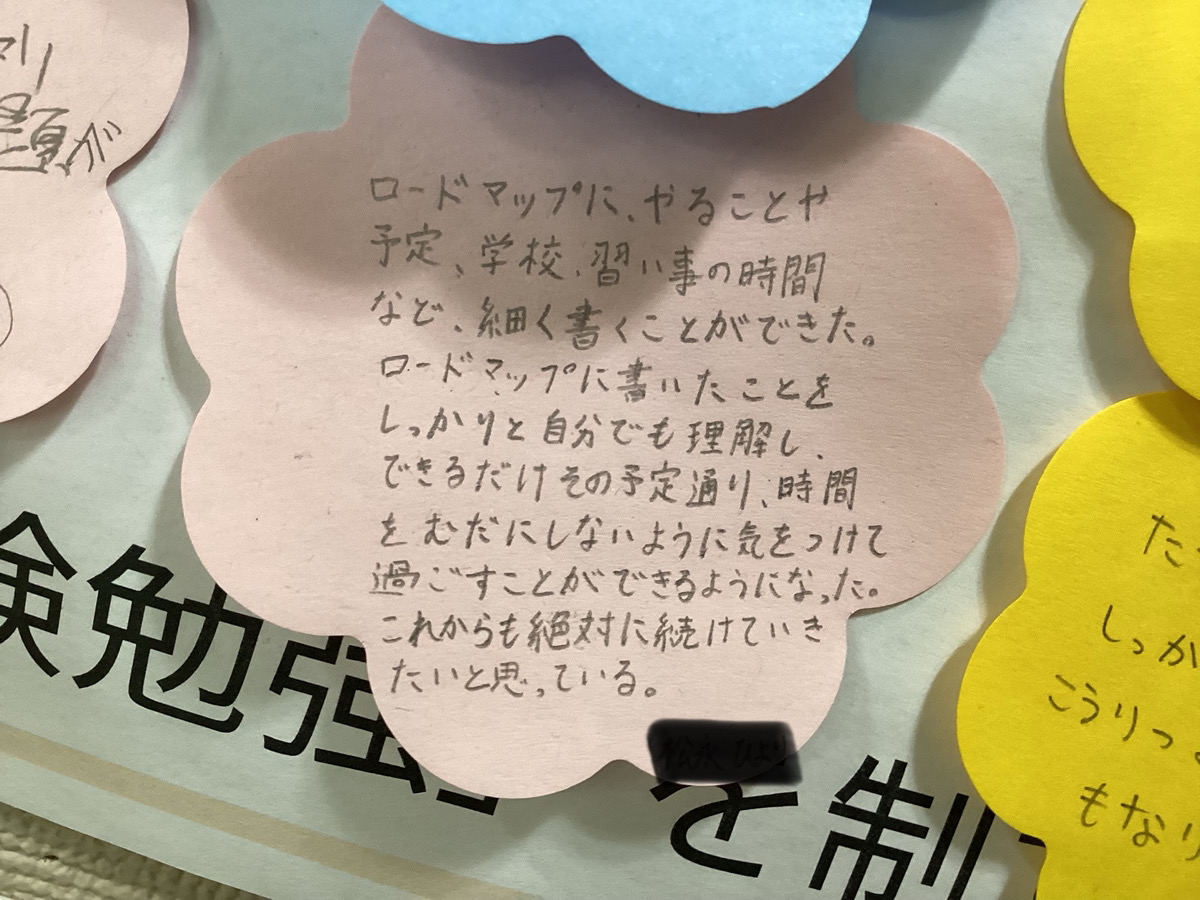 ロードマップに、やることや
予定、学校、習い事の時間
など、細く書くことができた。
ロードマップに書いたことを
しっかりと自分でも理解し、
できるだけその予定通り、時間
をむだにしないように気をつけて
過ごすことができるようになった。
これからも絶対に続けていき
たいと思っている。
験勉強
を制
題が
た
しっか
こうりつ
もなり